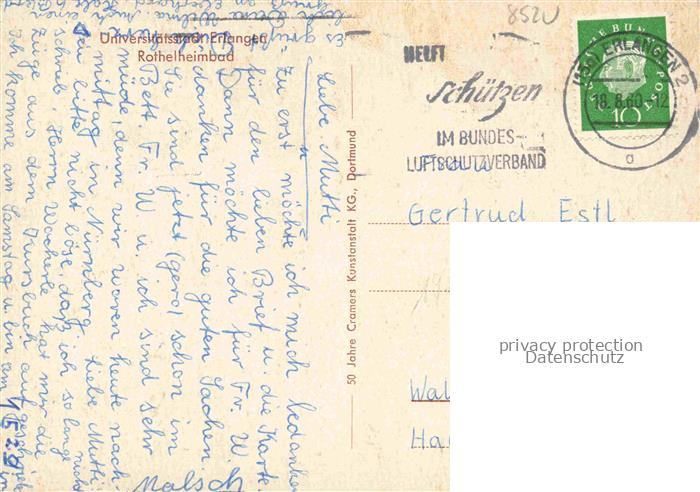 8520
Universitätsstadt Erlangen
Rothelheimbad
HELFT
schützen
IM BUNDES-
LUFTSCHUTZVERBAND
ERLANGEN 2
18.8.60-12
DEUTSCHE BUNDESPOST
10
Gertrud Estl
Wal
Ha
privacy protection
Datenschutz
50 Jahre Cramers Kunstanstalt KG., Dortmund
Liebe Mutti
Zu erst möchte ich mich bedanken
für den lieben Brief u. die Karte.
Dann möchte ich für Fr. W.
danken, für die guten Sachen.
Sie sind jetzt (gero) schon im
Bett. Fr. W. u. ich sind sehr
müde, denn wir waren heute nach-
mittag in Nürnberg. Liebe Mutti,
sei bitte nicht böse, daß ich so lange nicht
schrieb. Herr Wacherle hat mir die
Züge aus dem Kursbuch aufgeschrieben
Ich komme am Samstag u. bin um
15 29 in
Malsch